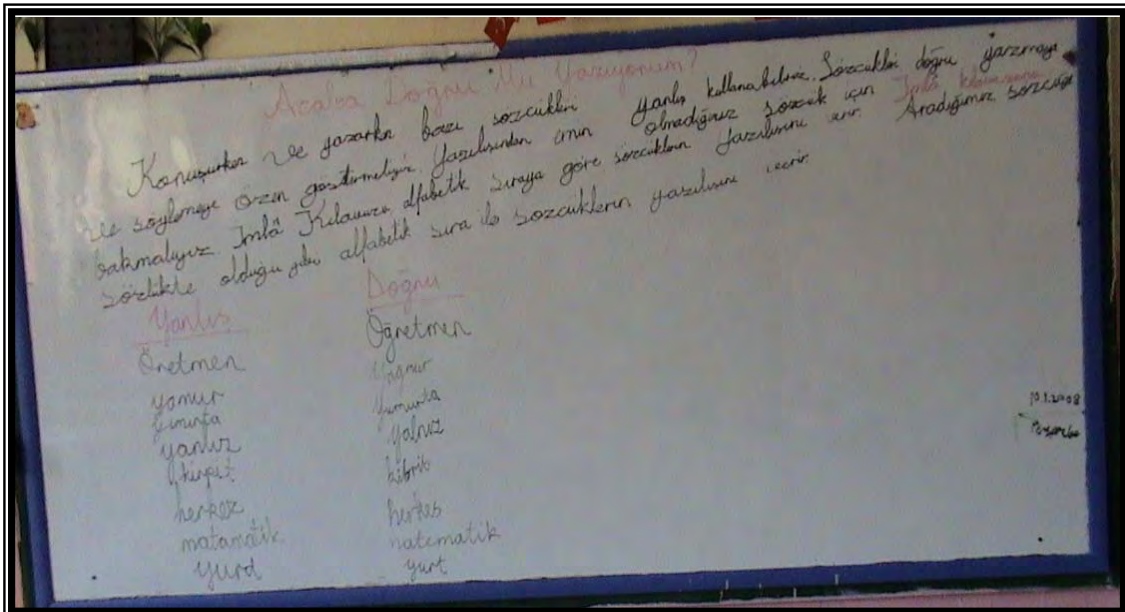 Acaba Doğru Mu Yazıyorum?
Konuşurken ve yazarken bazı sözcükleri yanlış kullanabiliriz. Sözcükleri doğru yazmaya
ve söylemeye özen göstermeliyiz. Yazılışından emin olmadığımız sözcük için İmlâ kılavuzuna
bakmalıyız. İmlâ Kılavuzu, alfabetik sıraya göre sözcüklerin yazılışını verir. Aradığımız sözcüğü
sözlükte olduğu gibi alfabetik sıra ile sözcüklerin yazılışını verir.
Yanlış Doğru
Önetmen Öğretmen
yamur Yağmur
yımırta Yumurta
yanlız Yalnız
kirpit kibrit
herkez herkes
matamatik matematik
yurd yurt
10.1.2008
Perşembe